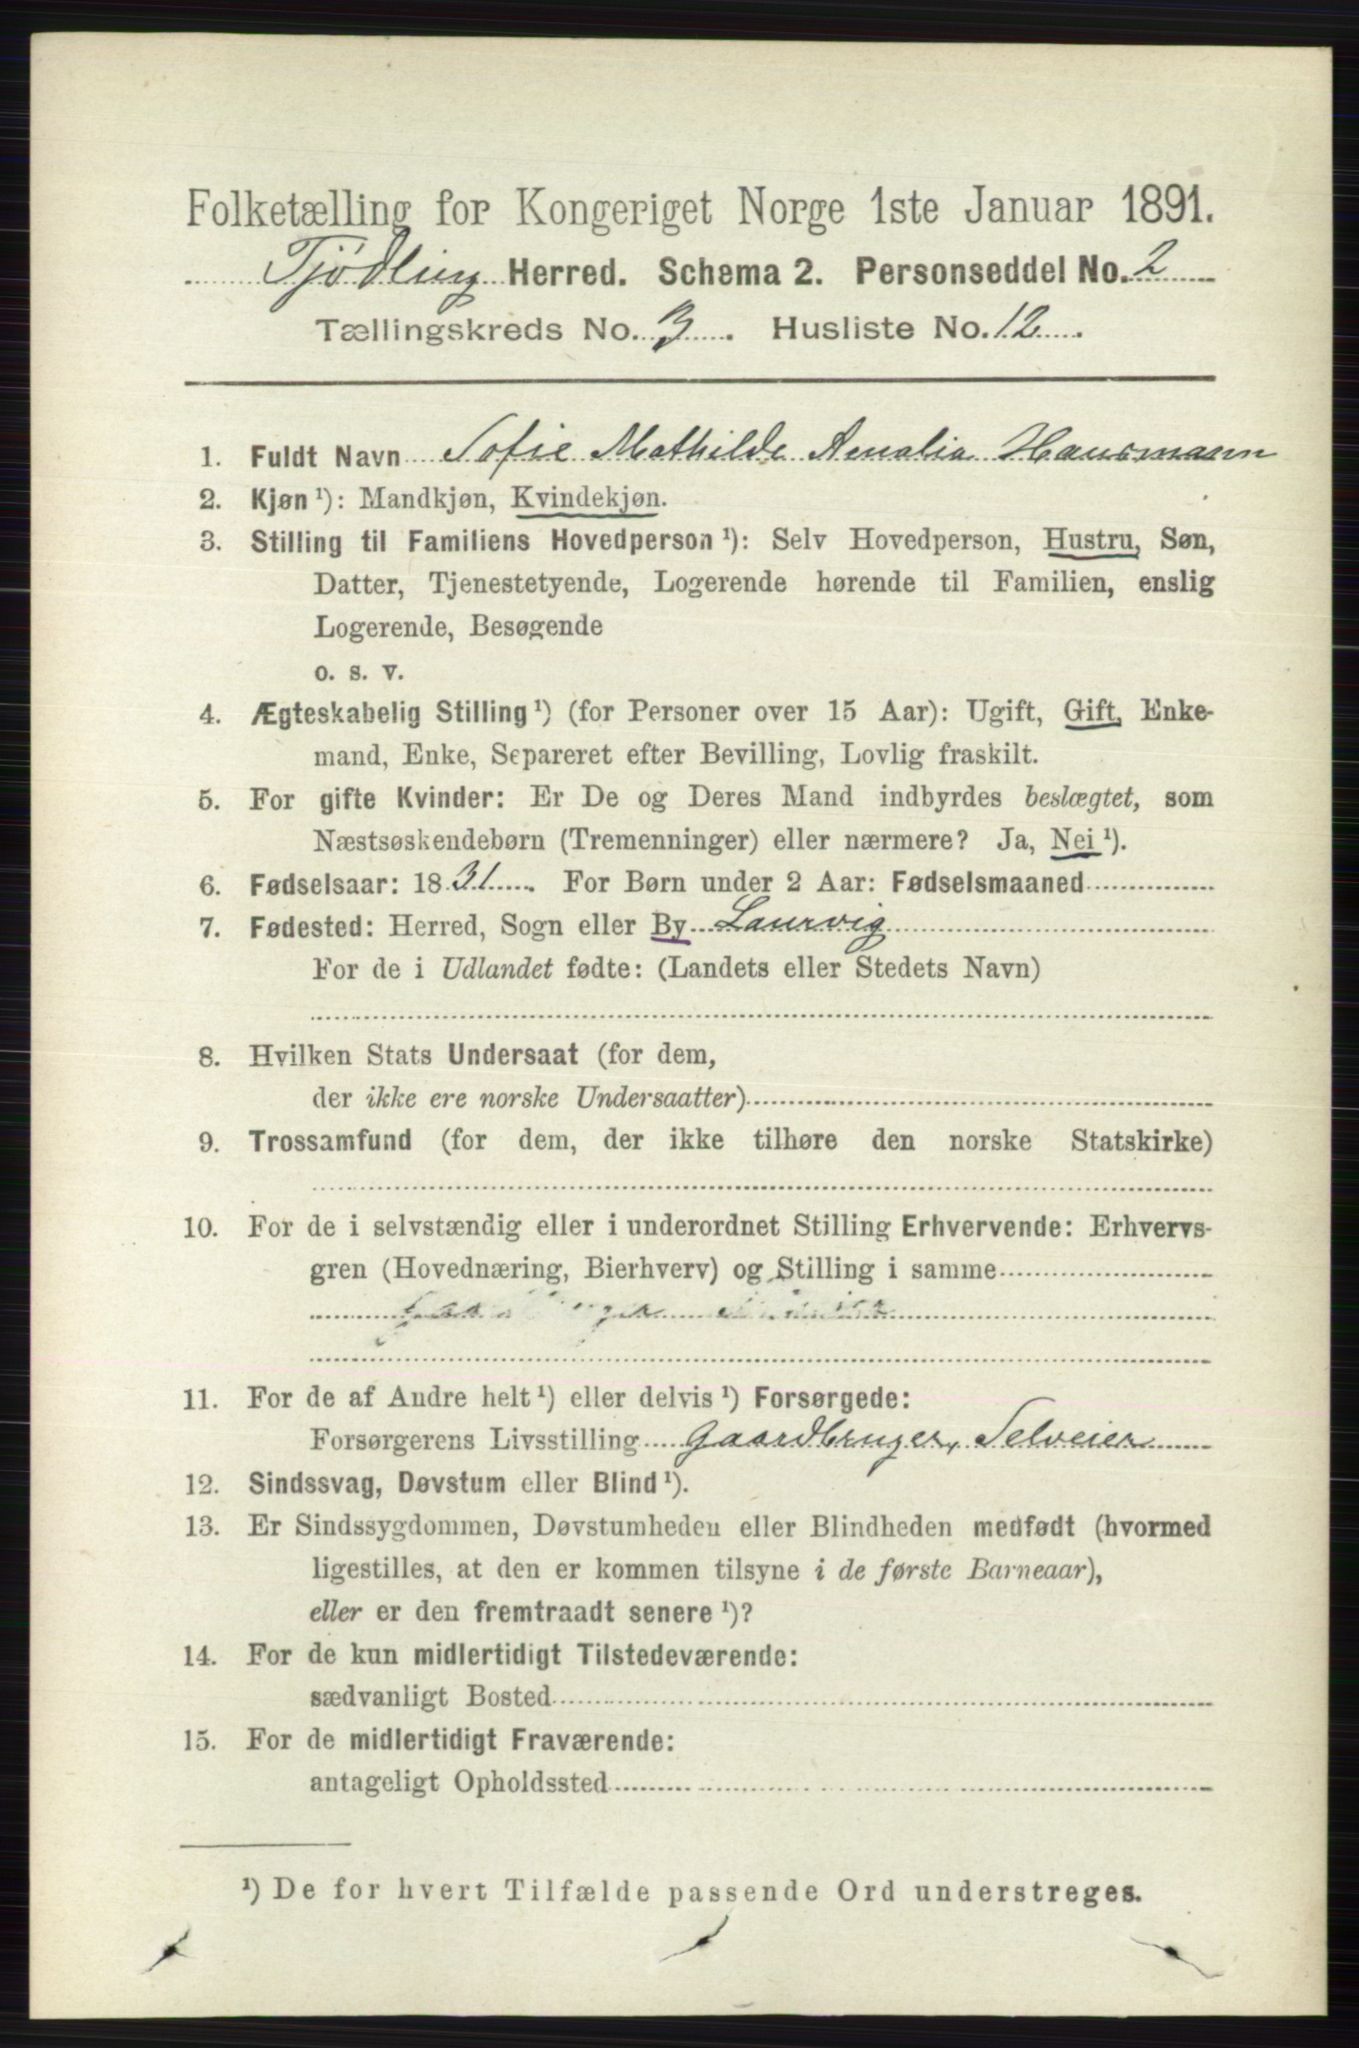 Folketælling for Kongeriget Norge 1ste Januar 1891.
Tjødling Herred. Schema 2. Personseddel No. 2
Tællingskreds No. 3. Husliste No. 12.
1. Fuldt Navn Sofie Mathilde Amalia Hausmann
2. Kjøn ¹): Mandkjøn, Kvindekjøn.
3. Stilling til Familiens Hovedperson ¹): Selv Hovedperson, Hustru, Søn,
Datter, Tjenestetyende, Logerende hørende til Familien, enslig
Logerende, Besøgende
o. s. v.
4. Ægteskabelig Stilling ¹) (for Personer over 15 Aar): Ugift, Gift, Enke-
mand, Enke, Separeret efter Bevilling, Lovlig fraskilt.
5. For gifte Kvinder: Er De og Deres Mand indbyrdes beslægtet, som
Næstsøskendebørn (Tremenninger) eller nærmere? Ja, Nei ¹).
6. Fødselsaar: 1831. For Børn under 2 Aar: Fødselsmaaned
7. Fødested: Herred, Sogn eller By Laurvig
For de i Udlandet fødte: (Landets eller Stedets Navn)
8. Hvilken Stats Undersaat (for dem,
der ikke ere norske Undersaatter)
9. Trossamfund (for dem, der ikke tilhøre den norske Statskirke)
10. For de i selvstændig eller i underordnet Stilling Erhvervende: Erhvervs-
gren (Hovednæring, Bierhverv) og Stilling i samme
11. For de af Andre helt ¹) eller delvis ¹) Forsørgede:
Forsørgerens Livsstilling Gaardbruger, Selveier
12. Sindssvag, Døvstum eller Blind ¹).
13. Er Sindssygdommen, Døvstumheden eller Blindheden medfødt (hvormed
ligestilles, at den er kommen tilsyne i de første Barneaar),
eller er den fremtraadt senere ¹)?
14. For de kun midlertidigt Tilstedeværende:
sædvanligt Bosted
15. For de midlertidigt Fraværende:
antageligt Opholdssted
¹) De for hvert Tilfælde passende Ord understreges.